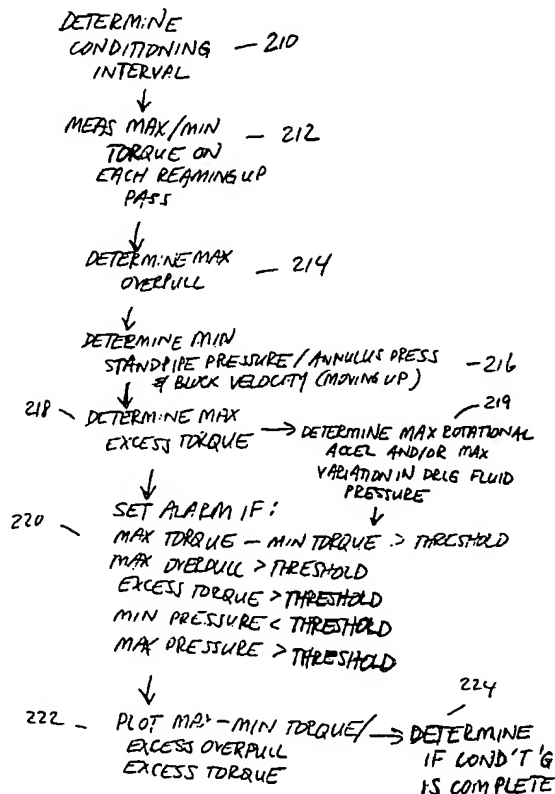 DETERMINE
CONDITIONING - 210
INTERVAL
MEAS MAX/MIN - 212
TORQUE ON
EACH REAMING UP
PASS
DETERMINE MAX - 214
OVERPULL
DETERMINE MIN
STANDPIPE PRESSURE/ANNULUS PRESS - 216
& BLOCK VELOCITY (MOVING UP)
218 DETERMINE MAX
EXCESS TORQUE
219
DETERMINE MAX ROTATIONAL
ACCEL AND/OR MAX
VARIATION IN DRLG FLUID
PRESSURE
220 SET ALARM IF:
MAX TORQUE - MIN TORQUE > THRESHOLD
MAX OVERPULL > THRESHOLD
EXCESS TORQUE > THRESHOLD
MIN PRESSURE < THRESHOLD
MAX PRESSURE > THRESHOLD
222 - PLOT MAX-MIN TORQUE/
EXCESS OVERPULL
EXCESS TORQUE
224
DETERMINE
IF COND'T'G
IS COMPLETE